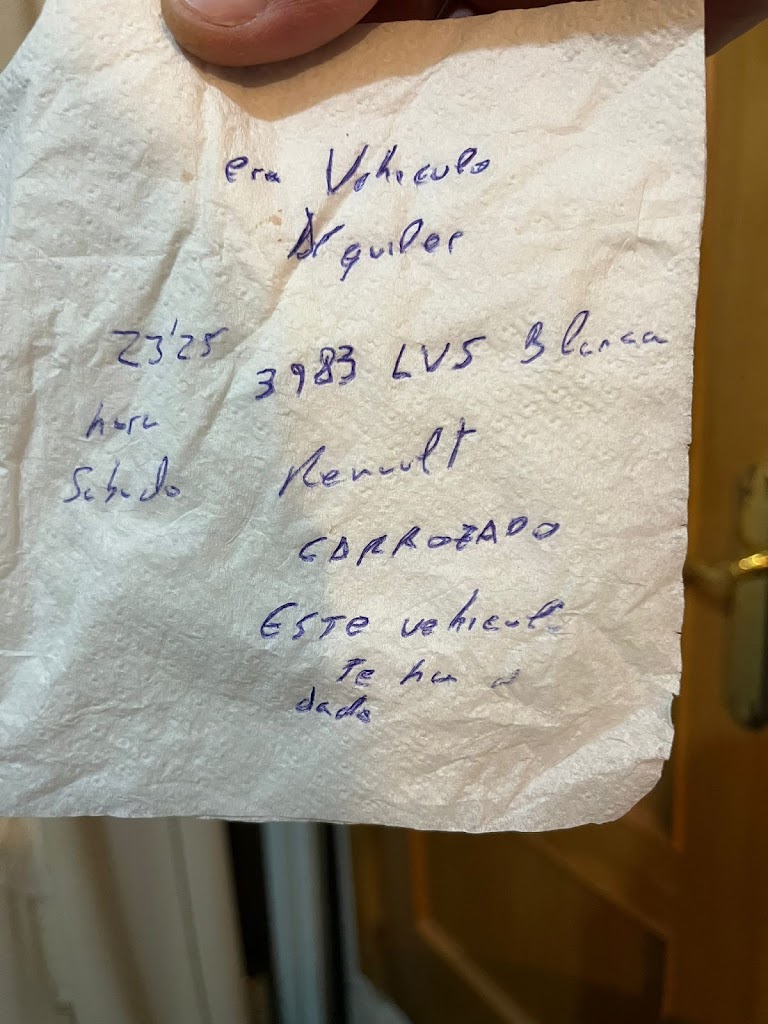 era Vehiculo
Alquiler
23'25 3983 LVS Blanca
hora
Sabado Renault
CARROZADO
ESTE vehiculo
Te ha
dado